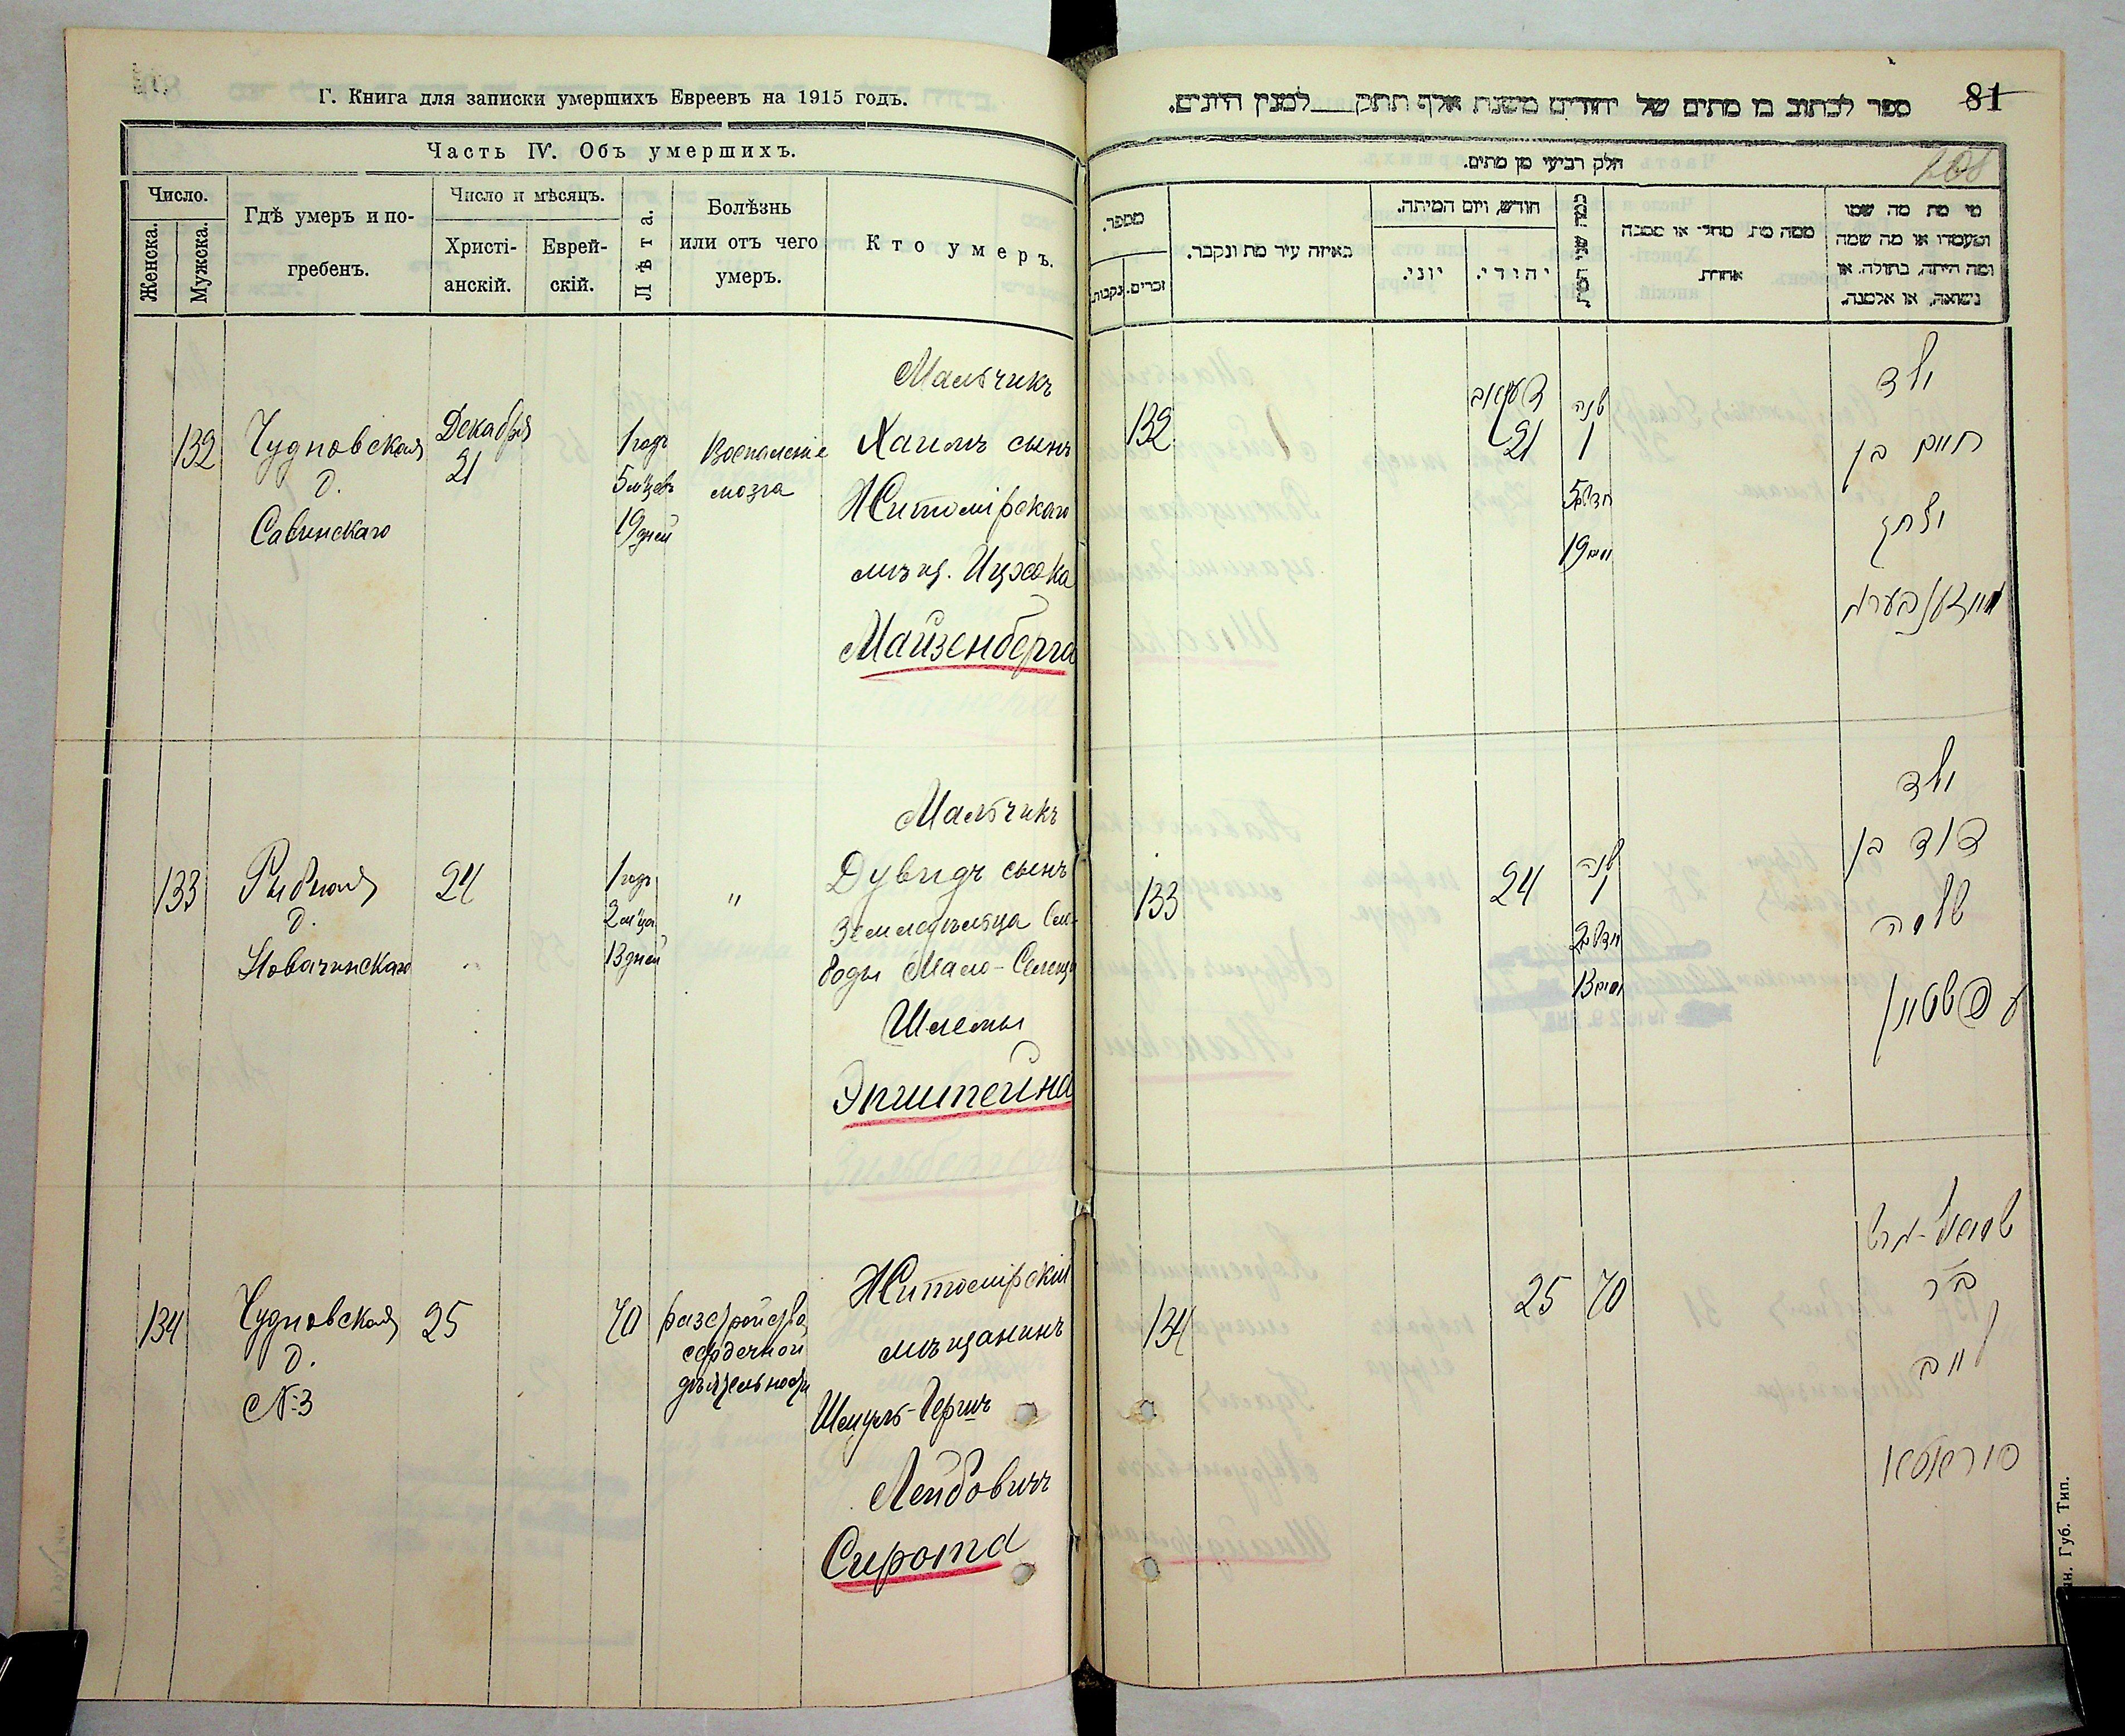 Г. Книга для записки умершихъ Евреевъ на 1915 годъ.
Часть IV. Объ умершихъ.
Число.
Женска.
Мужска.
Гдѣ умеръ и по-
гребенъ.
Число и мѣсяцъ.
Христі-
анскій.
Еврей-
скій.
Лѣта.
Болѣзнь
или отъ чего
умеръ.
Кто умеръ.
132
Чудновская
д.
Савинскаго
Декабря
21
1 годъ
5 м'цевъ
19 дней
Воспаленіе
мозга
Мальчикъ
Хаимъ сынъ
Житомірскаго
мѣщ. Ицхока
Майзенберга
133
Рыбная
д.
Новачинскаго
24
1 годъ
2 м'ца
13 дней
"
Мальчикъ
Дувидъ сынъ
Земледѣльца Сло-
боды Мало-
Шлемы
Эпштейна
134
Чудновская
д.
№ 3
25
70
разстройство
сердечной
дѣятельности
Житомірскій
мѣщанинъ
Шмуль-Гершъ
Лейбовичъ
Сирота
81
ספר לכתוב בו מתים של יהודים משנת אלף תתק למנין היונים.
208
חלק רביעי מן מתים.
מספר.
נקבות.
זכרים.
באיזה עיר מת ונקבר.
חודש, ויום המיתה.
יוני.
יהודי.
ממה מת מחלי או מסבה
אחרת
מי מת מה שמו
ומעמדו או מה שמה
ומה היתה, בתולה, או
נשואה, או אלמנה.
132
דעקאב
21
שנה
1
חדשים 5
יום 19
ילד
חיים בן
יצחק
מייזענבערג
133
24
שנה
1
חדשים 2
יום 13
ילד
דוד בן
שלמה
עפשטיין
134
25
70
שמואל-הרש
ב"ר
לייב
סיראטא
Губ. Тип.